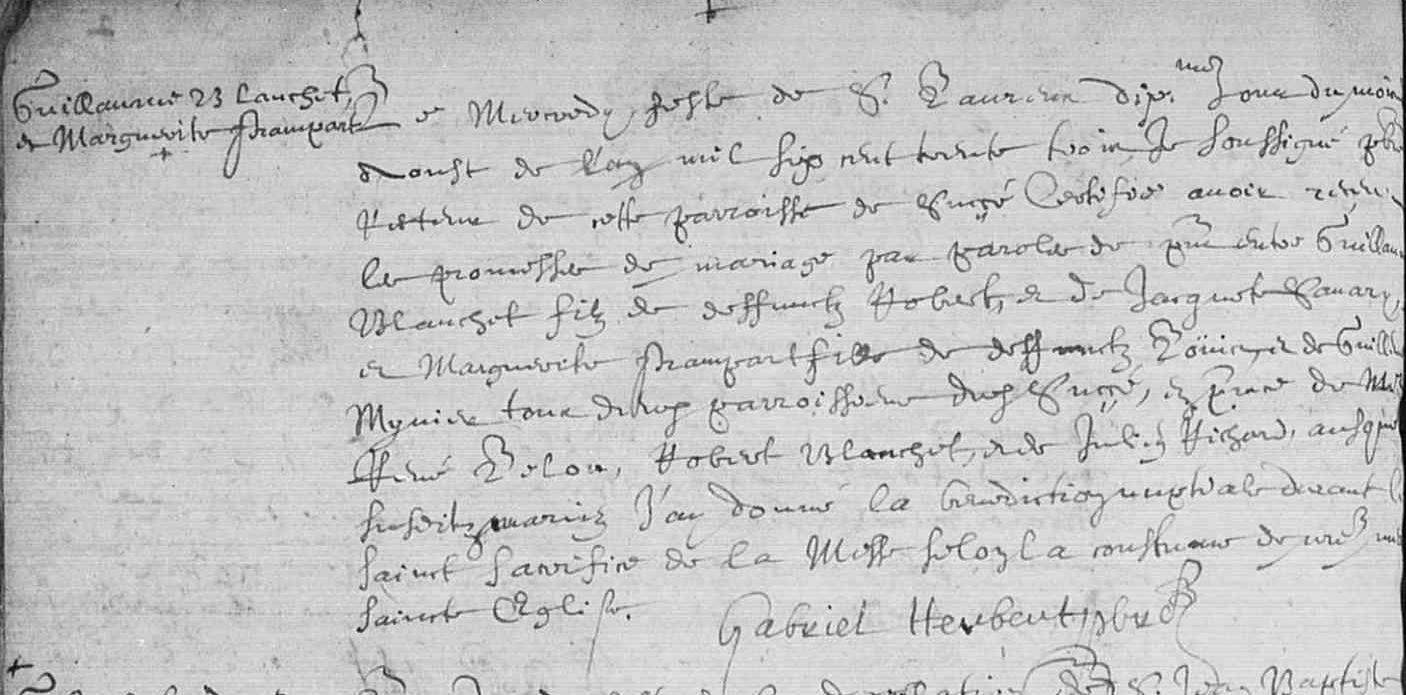 Guillaume Blanchet,
et Marguerite Frampart
Le Mercredy feste de S. Laurens dixme Jour du mois
d'Aoust de l'an mil six cent trente trois Je soussigné pbre
Vicaire de cette parroisse de Succé Certifie avoir receu
les promesses de mariage par paroles de pnt entre Guillaume
Blanchet filz de deffunctz Robert, et de Jacquete Savary,
et Marguerite Frampart fille de deffunctz et de Guill
tous deux parroissiens dud Succé, en pnce de
René Belon, Robert Blanchet, et de Julien Richard, ausquels
susditz mariez J'ay donné la benediction nuptiale durant le
sainct sacrifice de la Messe selon la coustume de nre mere
saincte Eglise.
Gabriel Herbert pbre
S. Jean Baptiste